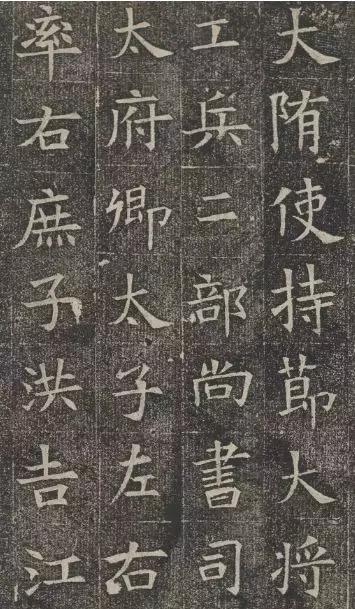 大隋使持莭大将
工兵二部尚書司
太府卿太子左右
率右庶子洪吉江